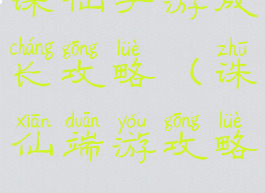 诛仙手游成
cháng gōng lüè zhū
长攻略（诛
xiān duān yóu gōng lüè
仙端游攻略